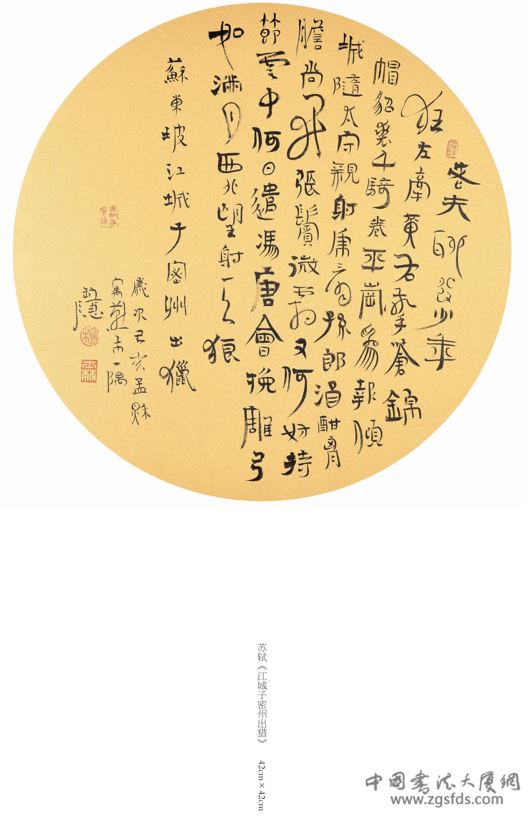 老夫聊發少年
狂左牽黃右擎蒼錦
帽貂裘千騎卷平崗為報傾
城隨太守親射虎看孫郎酒酣胸
膽尚開張鬢微霜又何妨持
節雲中何日遣馮唐會挽雕弓
如滿月西北望射天狼
蘇東坡江城子密州出獵
歲次己亥孟秋
一隅
苏轼《江城子密州出猎》 42cm×42cm
中国书法大厦網
www.zgsfds.com